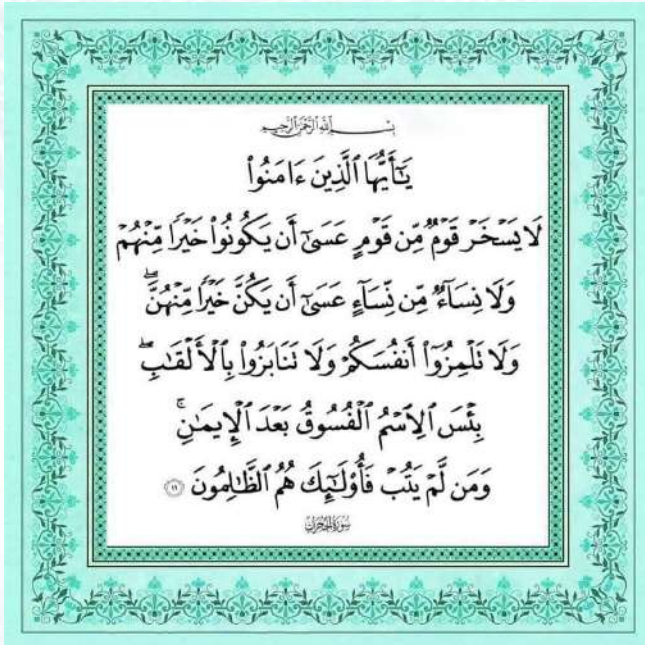 بِسْمِ ٱللَّهِ ٱلرَّحْمَٰنِ ٱلرَّحِيمِ
يَٰٓأَيُّهَا ٱلَّذِينَ ءَامَنُوا۟
لَا يَسْخَرْ قَوْمٌ مِّن قَوْمٍ عَسَىٰٓ أَن يَكُونُوا۟ خَيْرًا مِّنْهُمْ
وَلَا نِسَآءٌ مِّن نِّسَآءٍ عَسَىٰٓ أَن يَكُنَّ خَيْرًا مِّنْهُنَّ ۖ
وَلَا تَلْمِزُوٓا۟ أَنفُسَكُمْ وَلَا تَنَابَزُوا۟ بِٱلْأَلْقَٰبِ ۖ
بِئْسَ ٱلِٱسْمُ ٱلْفُسُوقُ بَعْدَ ٱلْإِيمَٰنِ ۚ
وَمَن لَّمْ يَتُبْ فَأُو۟لَٰٓئِكَ هُمُ ٱلظَّٰلِمُونَ ١١
سُورَةُ الحُجُرَاتِ